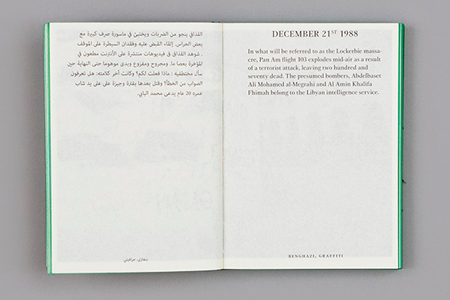 القذافي ينجو من الضربات ويختبئ في ماسورة صرف كبيرة مع
بعض الحراس. إلقاء القبض عليه وفقدان السيطرة على الموقف
. شوهد القذافي في فيديوهات منتشرة على الأنترنت مطعون في
المؤخرة بعصا ما، ومجروح ومفزوع ويدي موهوما حتى النهاية حين
سأل مختطفيه : ماذا فعلت لكم؟ وكانت آخر كلامته: هل تعرفون
الصواب من الخطأ؟ وقتل بعدها بفترة وجيزة على يد شاب
عمره 20 عام يدعى محمد
بنغازي، جرافيتي
DECEMBER 21ST 1988
In what will be referred to as the Lockerbie massa-
cre, Pan Am flight 103 explodes mid-air as a result
of a terrorist attack, leaving two hundred and
seventy dead. The presumed bombers, Abdelbaset
Ali Mohamed al-Megrahi and Al Amin Khalifa
Fhimalt belong to the Libyan intelligence service.
BENGHAZI, GRAFFITI